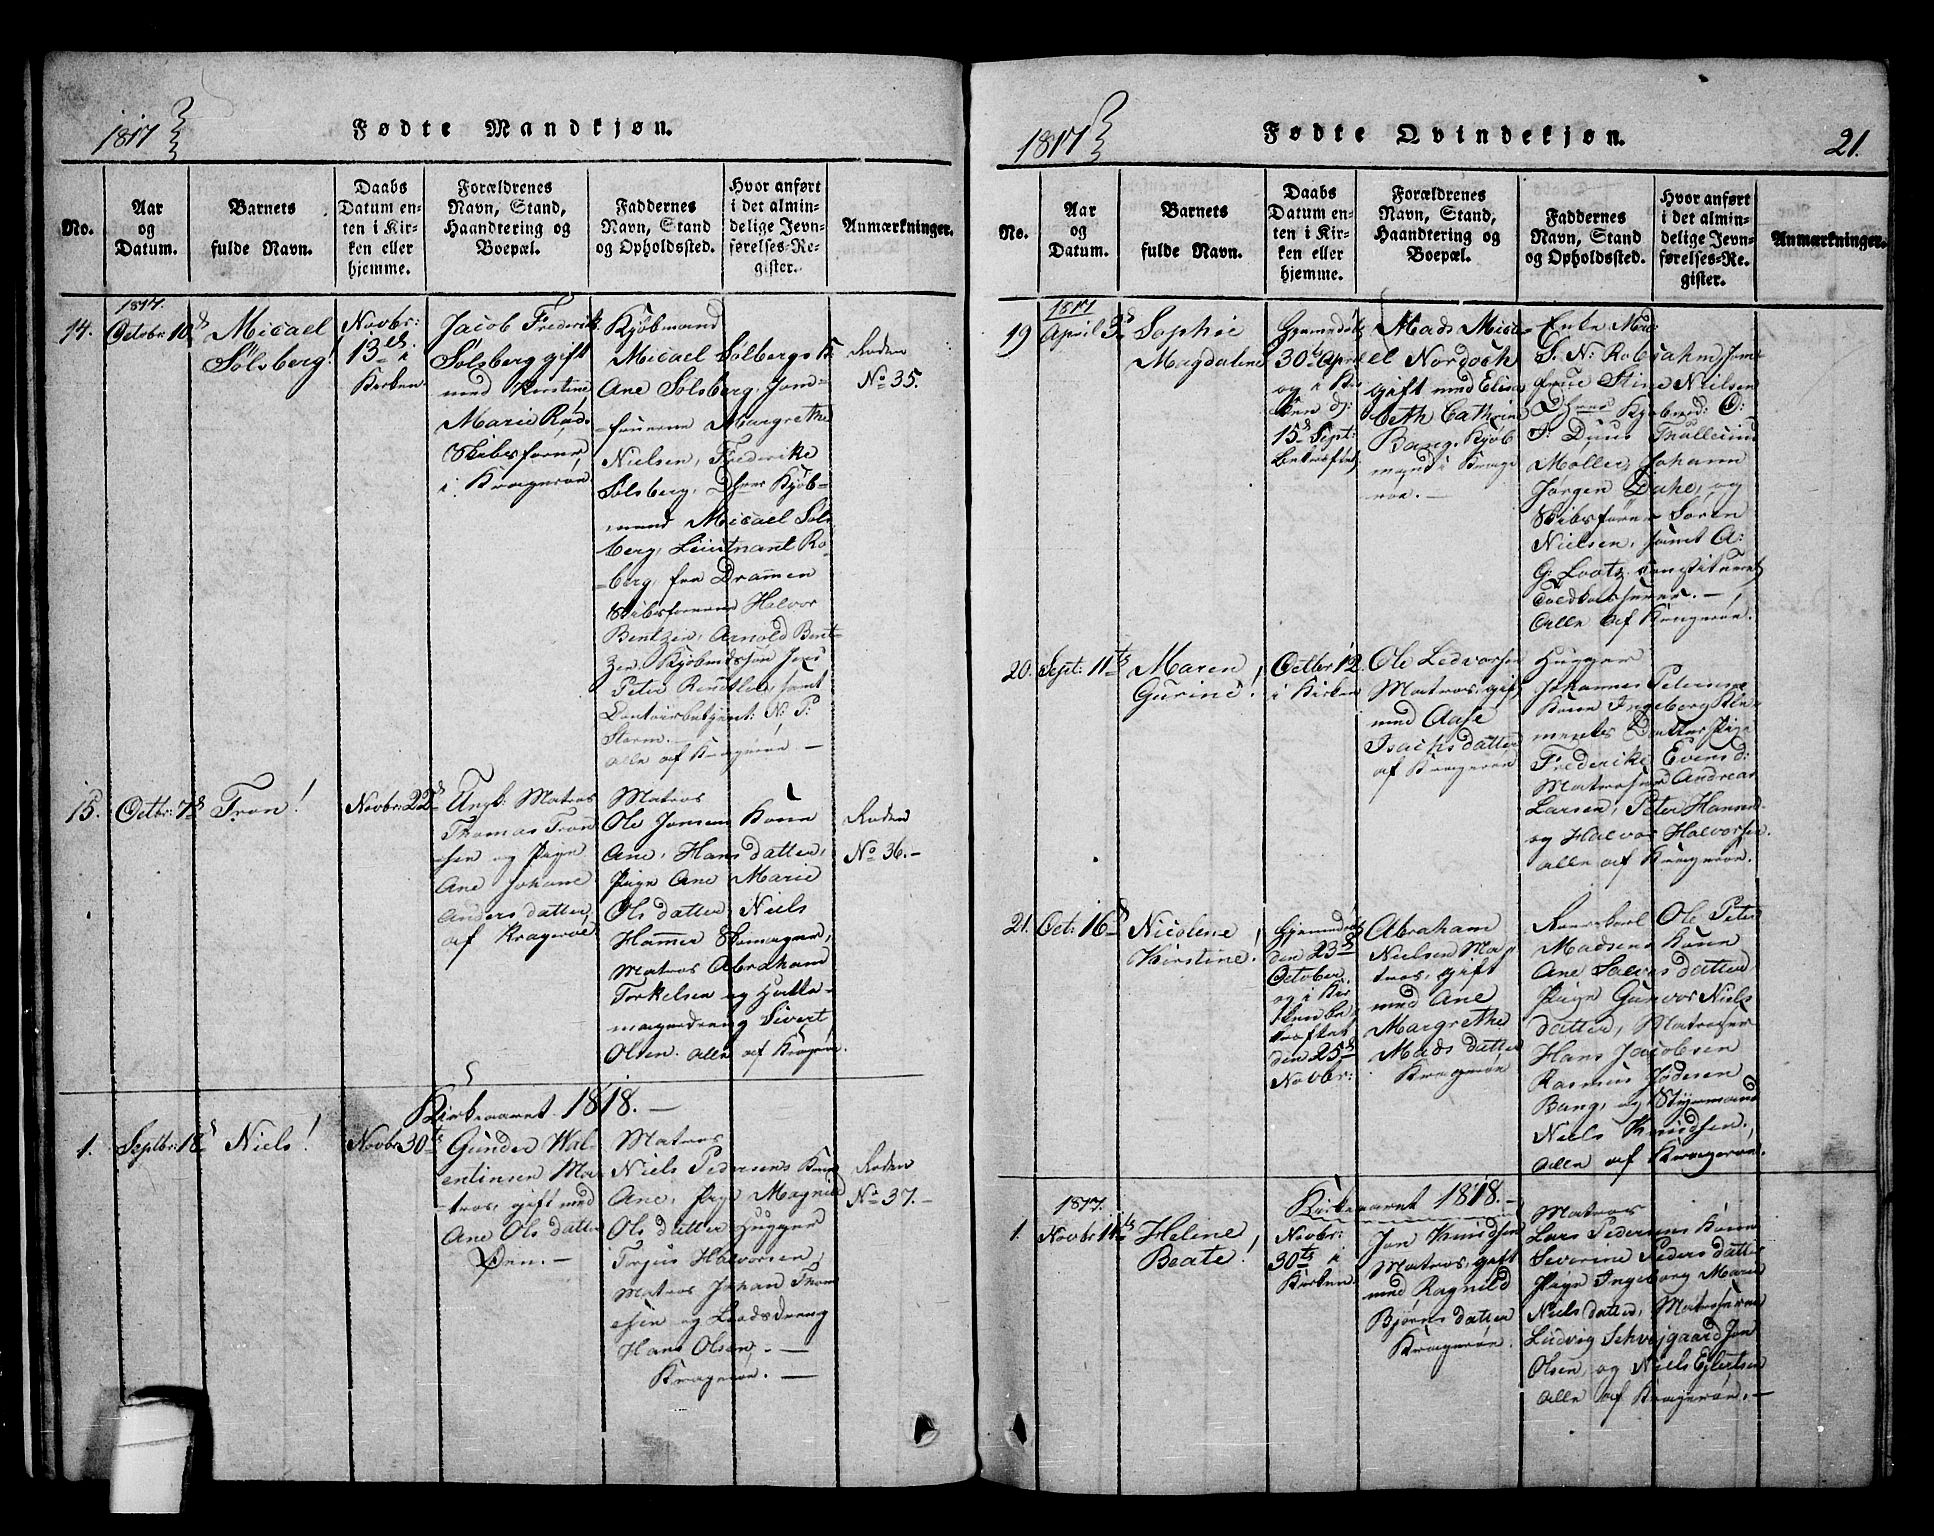 1817
Fødte Mandkjøn.
No.
Aar
og
Datum.
Barnets
fulde Navn.
Daabs
Datum en-
ten i Kir-
ken eller
hjemme.
Forældrenes
Navn, Stand,
Haandtering og
Boepæl.
Faddernes
Navn, Stand
og Opholdssted.
Hvor anført
i det almin-
delige Jevn-
førelses-Re-
gister.
Anmærkninger.
1817.
14.
Octobr: 10de
Micael
Sølsberg!
Novbr:
13de i
Kirken
Jacob Frederik
Sølsberg gift
med Kirstine
Marie Rød.
Skibsfører
i Kragerøe,
Kjøbmand
Micael Sølbergs K:
Ane Sølsberg, Jom-
fruerne Margrethe
Nielsen, Frederike
Sølsberg, Dhrrer Kjøb-
mand Micael Søls
berg, Lieutnant Ro-
berg, fra Drammen
Skibsførerne Halvor
Bentzen, Arnold Bent-
zen, Kjøbmdssøn Jens
Peter samt
Contoirbetjent: N: P:
Storm.
alle af Kragerøe –
Roden
No 35.
15.
Octbr: 7de
Tron!
Novbr: 22de
Ungk: Matros
Thomas Tron
sen og Pige
Ane Johane
Anders datter,
af Kragerøe,
Matros
Ole Jensens Kone
Ane, Hans datter,
Pige Ane Marie
Ols datter, Niels
Hammer Skomager,
Matros Abraham
Torkelsen og Hatte-
magerdreng Sivert
Olsen. alle af Kragerøe.
Roden
No 36. –
Kirkeaaret 1818. –
1.
Septbr: 18de
Niels!
Novbr 30te
Gunder Wal-
entinsen Ma-
tros, gift med
Ane Ols datter
Øen. –
Matros
Niels Pedersens Kone
Ane, Pige Magnild
Ols datter Hugger
Torjus Halvorsen,
Matros Johan Thom
esen og Lodsdreng
Hans Olsen, –
Kragerøe. –
Roden
No 37. –
1817
Fødte Qvindekjøn.
21.
No.
Aar
og
Datum.
Barnets
fulde Navn.
Daabs
Datum en-
ten i Kir-
ken eller
hjemme.
Forældrenes
Navn, Stand,
Haandtering og
Boepæl.
Faddernes
Navn, Stand
og Opholdssted.
Hvor anført
i det almin-
delige Jevn-
førelses-Re-
gister.
Anmærkninger.
1817
19
April 3de
Sophie
Magdalene
Hjemdøbt
30te April
og i Kir
ken d:
15de Sept:
bekræftet
Mads Mica-
el Nordoch
gift med Elisa
beth Cathrine
Bang, Kjøb
mand i Krage
røe. –
Enke Mad:
S. N: Robsahm, Jom
frue Stine Nielsen
Dhrrer Kjøbmd: O:
J: Duus Thollesius
Møller, Johann
Jørgen Dahl, og
Skibsfører Søren
Nielsen, samt A:
G: Lootz. constitueret
Toldkasserer. –
Alle af Kragerøe.
20.
Sept: 11te
Maren
Gurine!
Octbr 12
i Kirken
Ole Ledvorsen
Matros, gift
med Aase
Isachsdatter
af Kragerøe
Hugger
Johannes Petersens
Kone Ingeborg Kle-
mentes Datter, Pige
Frederike Evensd:
Matroserne Andreas
Larsen, Peter Hansen
og Halvor Halvorsen.
alle af Kragerøe.
21.
Oct: 16de
Nicolene
Kirstine!
Hjemdøbt
den 23de
October
og i Kir
ken be
kræftet
den 25de
Novbr:
Abraham
Nielsen Ma
tros, gift
med Ane
Margrethe
Mads datter
Kragerøe
Ole Peter
Madsens Kone
Ane Salves datter
Pige Gunvor Niels
datter, Matroser
Hans Jacobsen
Rasmus
Bang, og Styrmand
Niels Knudsen,
alle af Kragerøe.
Kirkeaaret 1818. –
1817.
1.
Novbr 11te
Helene
Beate!
Novbr:
30te i
Kirken
Jon Knudsen
Matros, gift
med Ragnild
Bjørns datter
Kragerøe.
Matros
Lars Pedersens Kone
Severine Peders datter
Pige Ingeborg Marie
Niels datter, Matroserne
Ludvig Schvejgaard, Jon
Olsen, og Niels Ejlertsen
alle af Kragerøe. –